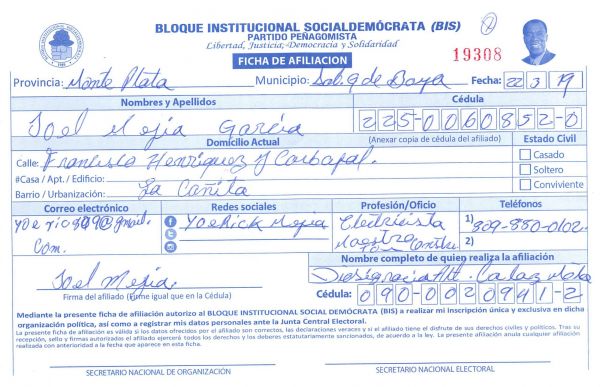 BLOQUE INSTITUCIONAL SOCIALDEMÓCRATA (BIS)
PARTIDO PEÑAGOMISTA
Libertad, Justicia, Democracia y Solidaridad
FICHA DE AFILIACION
19308
Provincia: Monte Plata Municipio: Sab. G de Boya Fecha: 22 3 19
Nombres y Apellidos Cédula
Joel Mejia García 225-0060852-0
Domicilio Actual (Anexar copia de cédula del afiliado) Estado Civil
Calle: Francisca Henríquez y Carbajal. Casado
#Casa / Apt. / Edificio: Soltero
Barrio / Urbanización: La Cañita Conviviente
Correo electrónico Redes sociales Profesión/Oficio Teléfonos
@gmail. Yoerick Mejia Electricista 1) 809-880-0102
com. Maestro 2)
Nombre completo de quien realiza la afiliación
Joel Mejia.
Firma del afiliado (Firme igual que en la Cédula) Cédula: 090-0020941-2
Mediante la presente ficha de afiliación autorizo al BLOQUE INSTITUCIONAL SOCIAL DEMÓCRATA (BIS) a realizar mi inscripción única y exclusiva en dicha
organización política, así como a registrar mis datos personales ante la Junta Central Electoral.
La presente ficha de afiliación es válida si los datos ofrecidos por el afiliado son correctos, las declaraciones veraces y si el afiliado tiene el disfrute de sus derechos civiles y políticos. Tras su
recepción, sello y firmas autorizadas el afiliado ejercerá todos los derechos y los deberes estatutariamente sancionados, de acuerdo a la ley. La presente afiliación anula cualquier afiliación
realizada con anterioridad a la fecha que aparece en esta ficha.
SECRETARIO NACIONAL DE ORGANIZACIÓN SECRETARIO NACIONAL ELECTORAL